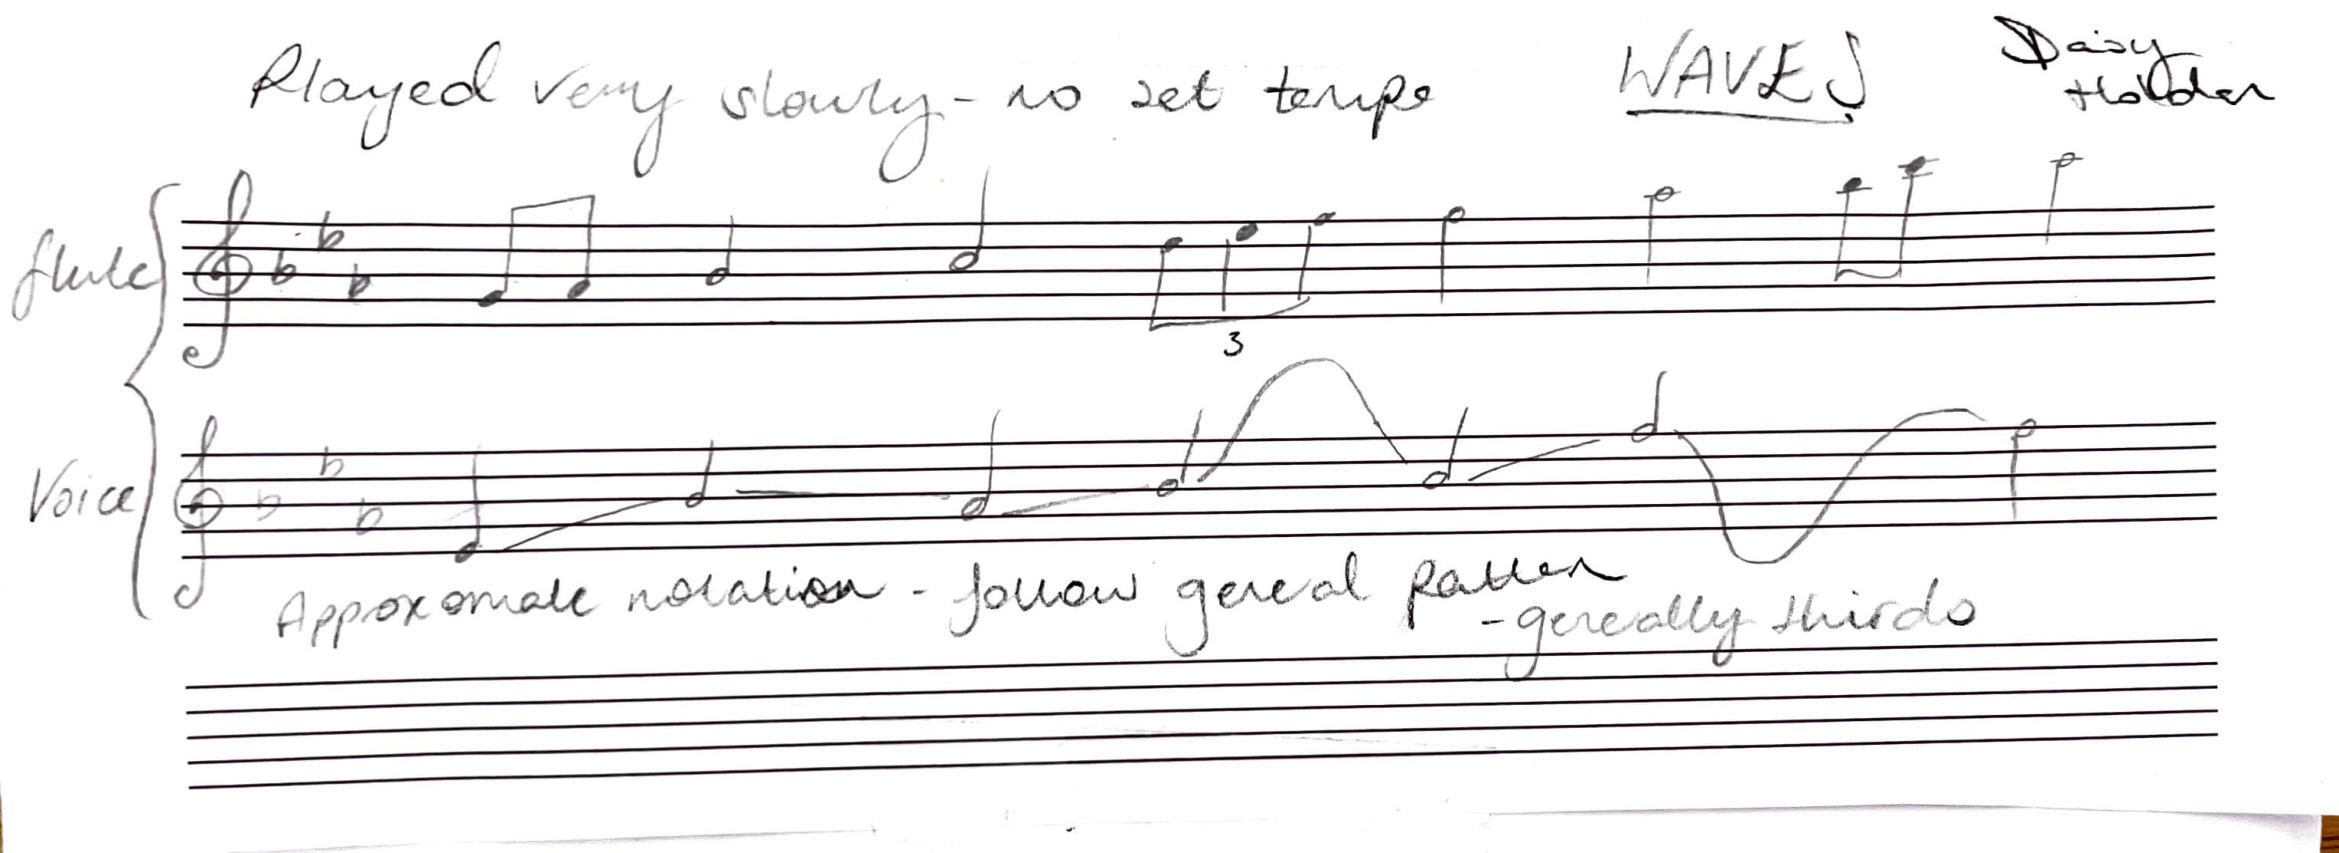 Played very slowly - no set tempo
WAVES
Daisy
Holder
flute
3
Voice
Approxomate notation - follow gereral patten
- gereally thirds